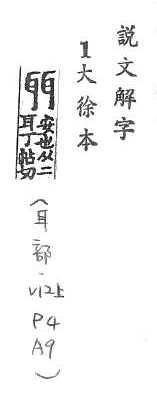 説文解字
1大徐本
安也从二
耳丁帖切
(耳部.
V12上
P4
A9)